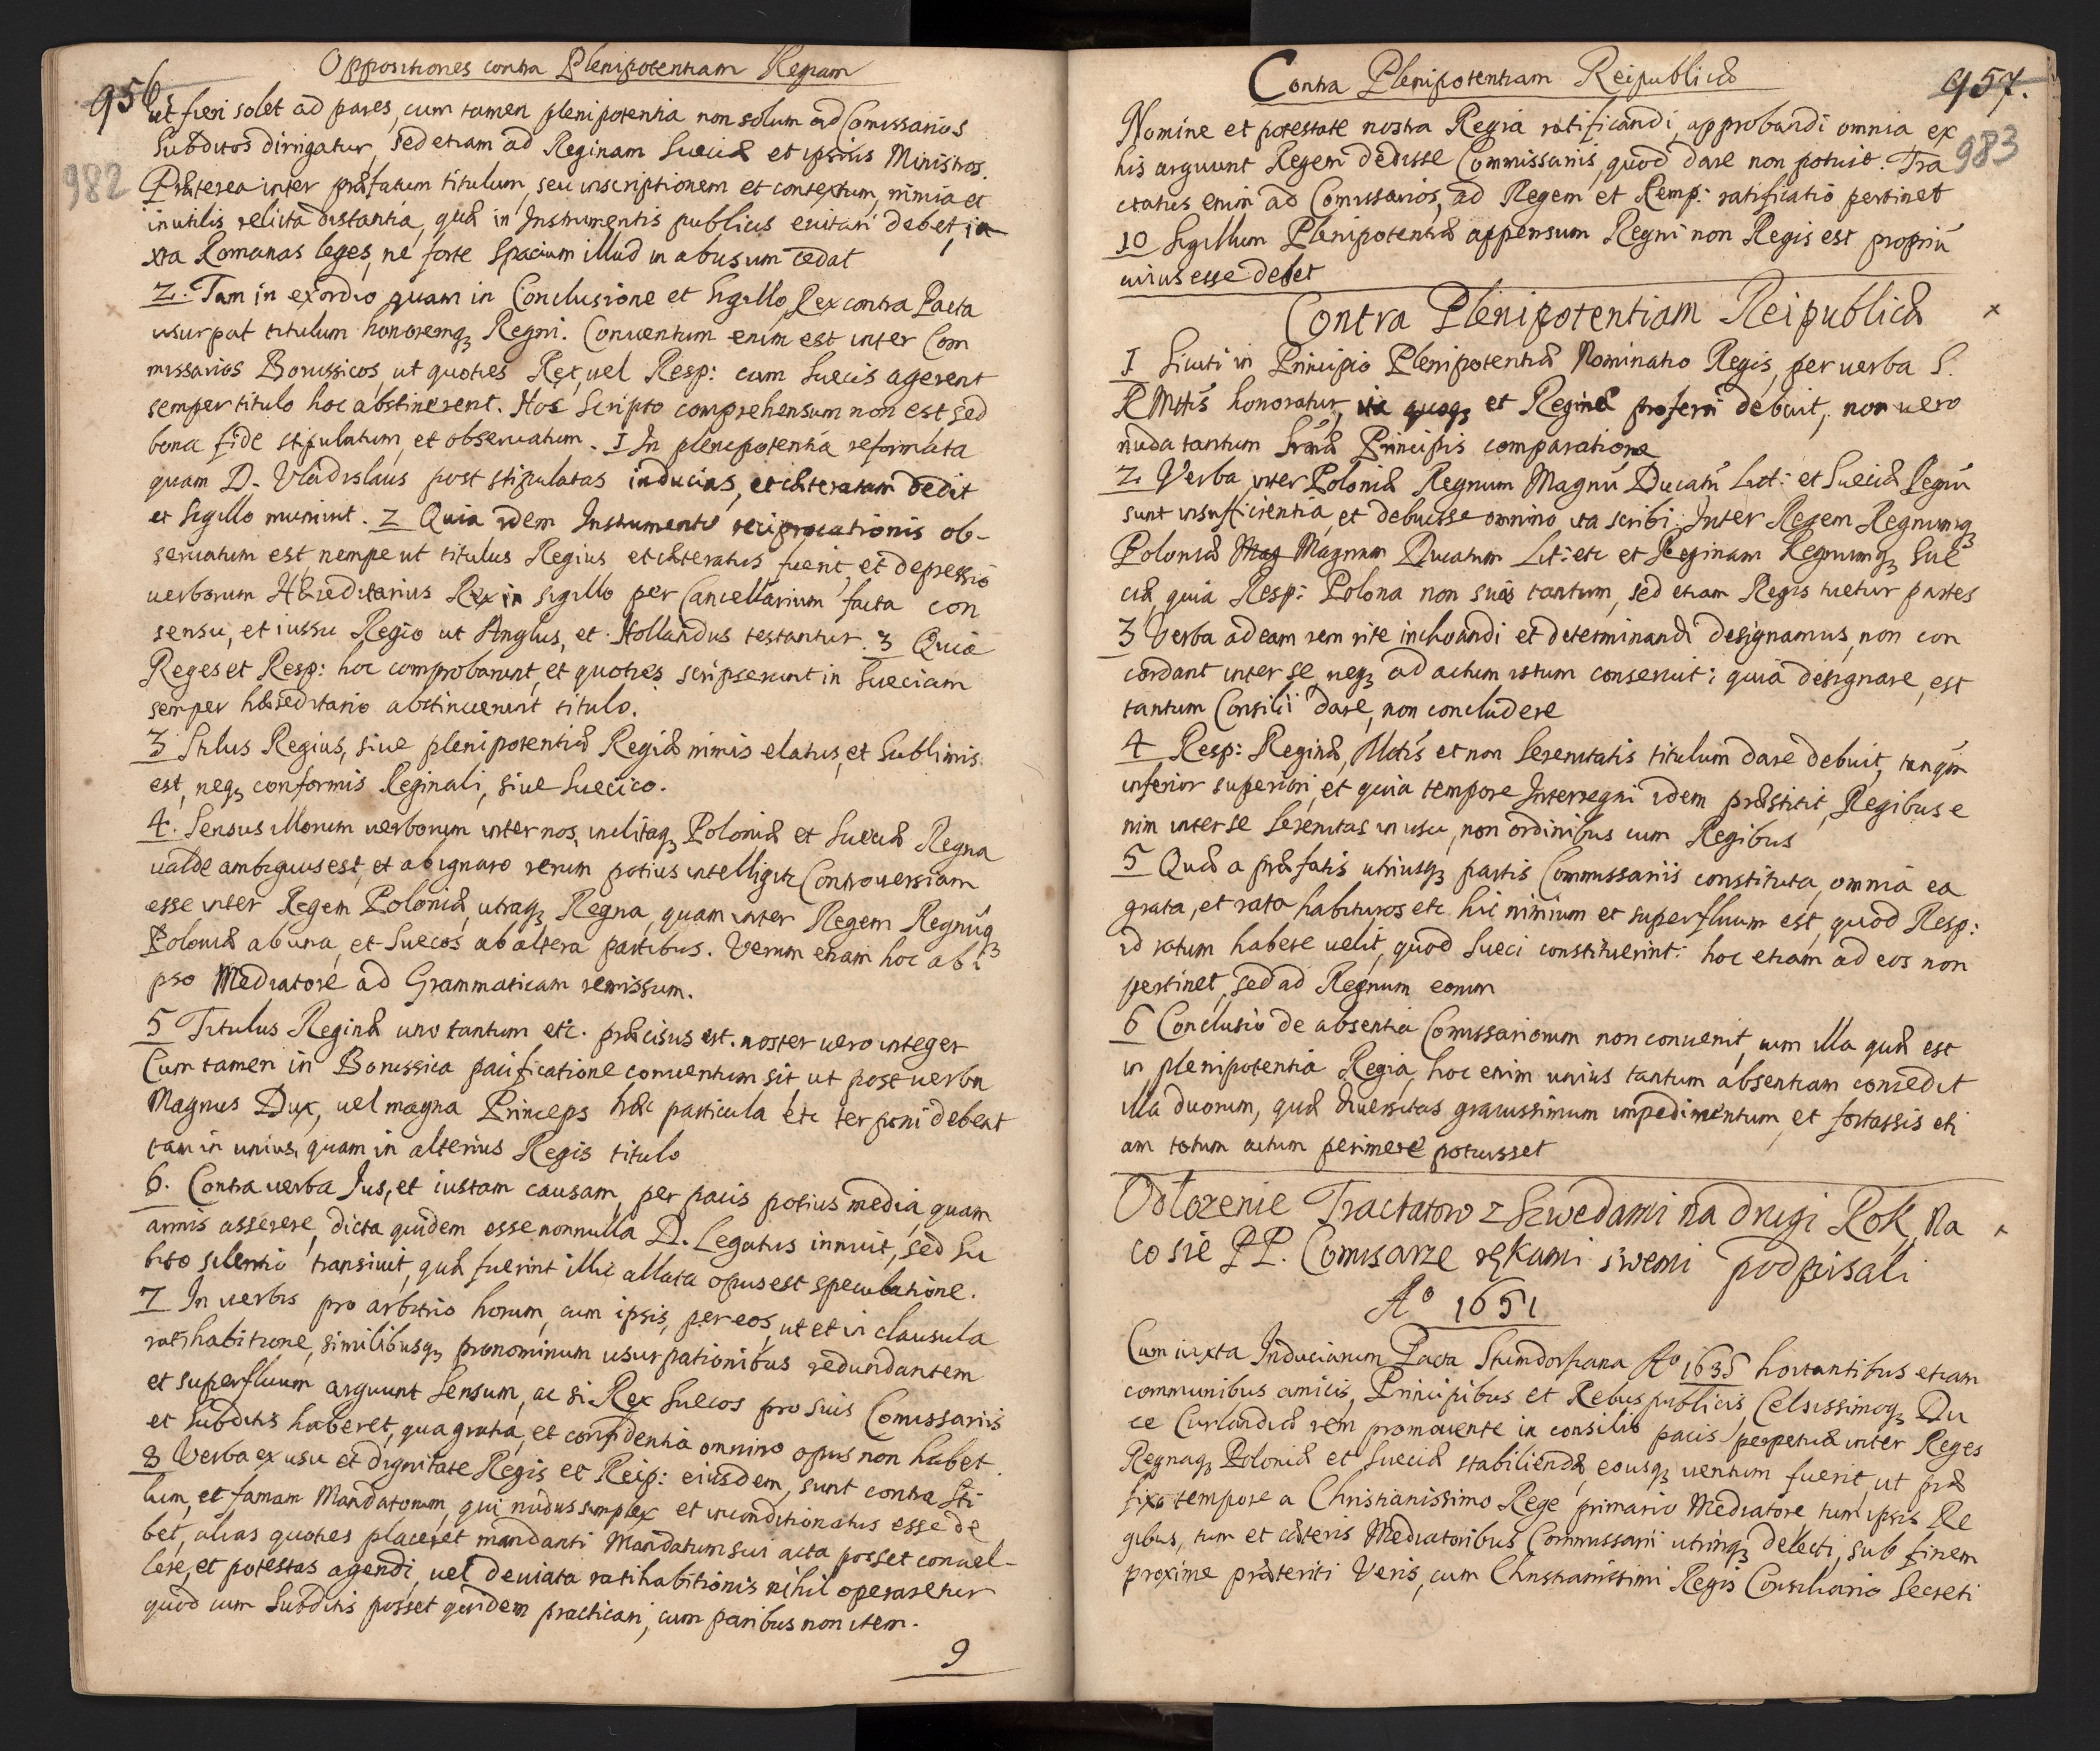 Oppositiones contra Plenipotentiam Regiam
956
982
ut fieri solet ad pares, cum tamen plenipotentia non solum ad Comissarios
Subditos dirrigatur, sed etiam ad Reginam Sueciæ et ipsius Ministros.
Præterea inter præfatum titulum, seu inscriptionem et contextum, nimia et
inutilis relicta distantia, quæ in Instrumentis publicis euitari debet, iu
xta Romanas leges, ne forte spacium illud in abusum cedat
2. Tam in exordio quam in Conclusione et Sigillo, Rex contra Pacta
usurpat titulum honoremq3 Regni. Conuentum enim est inter Com
missarios Borussicos, ut quoties Rex, uel Resp: cum Suecis agerent
semper titulo hoc abstinerent. Hoc Scripto comprehensum non est, sed
bona fide stipulatum, et obseruatum. 1 In plenipotentia reformata
quam D. Vladislaus post stipulatas inducias, et cæteratam dedit
et Sigillo muniuit. 2 Quia idem Instrumento reciprocationis ob-
seruatum est, nempe ut titulus Regius et cæteratus fuerit, et depressio
uerborum Hæreditarius Rex in sigillo per Cancellarium facta con
sensu, et iussu Regio ut Anglus, et Hollandus testantur. 3 Quia
Reges et Resp: hoc comprobarunt, et quoties scripserunt in Sueciam
semper hæreditario abstinuerunt titulo.
3 Stilus Regius, siue plenipotentiæ Regiæ nimis elatus, et Sublimis
est, neq3 conformis Reginali, siue Suecico.
4. Sensus illorum uerborum inter nos, inclitaq3 Poloniæ et Sueciæ Regna
ualde ambiguus est, et ab ignaro rerum potius intelligitr Controuersiam
esse inter Regem Poloniæ, utraq3 Regna, quam inter Regem Regnuq3
Poloniæ ab una, et Suecos ab altera partibus. Verum etiam hoc ab i
pso Mediatore ad Grammaticam remissum.
5 Titulus Reginæ uno tantum etc. præcisus est. noster uero integer
Cum tamen in Borussica pacificatione conuentum sit ut post uerba
Magnus Dux, uel magna Princeps hæc particula etc ter poni debeat
tam in unius, quam in alterius Regis titulo
6. Contra uerba Jus, et iustam causam, per pacis potius media, quam
armis asserere, dicta quidem esse nonnulla D. Legatus innuit, sed Su
bito silentio transiuit, quæ fuerint illic allata opus est speculatione.
7 In uerbis pro arbitrio horum, cum ipsis, per eos, ut et in clausula
ratihabitione, similibusq3 pronominum usurpationibus redundantem
et superfluum arguunt Sensum, ac si Rex Suecos pro suis Comissariis
et subditis haberet, qua gratia, et confidentia omnino opus non habet.
8 Verba ex usu et dignitate Regis et Reip: eiusdem, sunt contra Sti
lum, et famam Mandatorum, qui nudus simplex et inconditionatus esse de
bet, alias quoties placeret mandanti Mandatum sui acta posset conuel-
lere, et potestas agendi, uel deuiata ratihabitionis nihil operaretur
quod cum Subditis posset quidem practicari, cum paribus non item.
9
Contra Plenipotentiam Reipublicæ
957.
983
Nomine et potestate nostra Regia ratificandi, approbandi omnia ex
his arguunt Regem dedisse Commissariis, quod dare non potuit. Tra
ctatus enim ad Comissarios, ad Regem et Remp: ratificatio pertinet
10 Sigillum Plenipotentiæ appensum Regni non Regis est propriu
cuius esse debet
Contra Plenipotentiam Reipublicæ x
1 Sicuti in Principio Plenipotentiæ Nominatio Regis, per uerba S.
R Mttis honoratur, ita quoq3 et Reginæ proferri debuit, non uero
nuda tantum Srmæ Principis comparatione
2 Verba, inter Poloniæ Regnum Magnu Ducatu Lit: et Sueciæ Regnu
sunt insufficientia, et debuisse omnino ita scribi. Inter Regem Regnumq3
Poloniæ Mag Magnum Ducatum Lit: etc et Reginam Regnumq3 Sue
ciæ, quia Resp: Polona non suas tantum, sed etiam Regis tuetur partes
3 Verba ad eam rem rite inchoandi et determinandi designamus, non con
cordant inter se, neq3 ad actum istum conseruit: quia designare, est
tantum Consilii dare, non concludere
4 Resp: Reginæ, Mttis et non Serenitatis titulum dare debuit, tanqm
inferior superiori, et quia tempore Interregni idem præstitit, Regibus e
nim inter se Serenitas in usu, non ordinibus cum Regibus
5 Quæ a præfatis utriusq3 partis Commissariis constituta, omnia ea
grata, et rata habituros etc hic nimium et superfluum est, quod Resp:
id ratum habere uelit, quod Sueci constituerint: hoc etiam ad eos non
pertinet, sed ad Regnum eorum
6 Conclusio de absentia Comissariorum non conuenit, cum illa quæ est
in plenipotentia Regia, hoc enim unius tantum absentiam concedit
illa duorum, quæ diuersitas grauissimum impedimentum, et fortassis eti
am totum actum perimere potuisset
Odłozenie Tractatow z Szwedami na drugi Rok, Na
co sie PP. Comisarze rękami swemi podpisali
Ao 1651
Cum iuxta Induciarum Pacta Stumdorfiana Ao 1635 hortantibus etiam
communibus amicis, Principibus et Rebuspublicis, Celsissimoq3 Du
ce Curlandiæ rem promouente in consilio pacis perpetuæ inter Reges
Regnaq3 Poloniæ et Sueciæ stabiliendæ, eousq3 uentum fuerit, ut præ
fixo tempore a Christianissimo Rege primario Mediatore tum ipsis Re
gibus, tum et cæteris Mediatoribus Commissarii utrinq3 delecti, sub finem
proxime præteriti Veris, cum Christianissimi Regis Consiliario Secreti